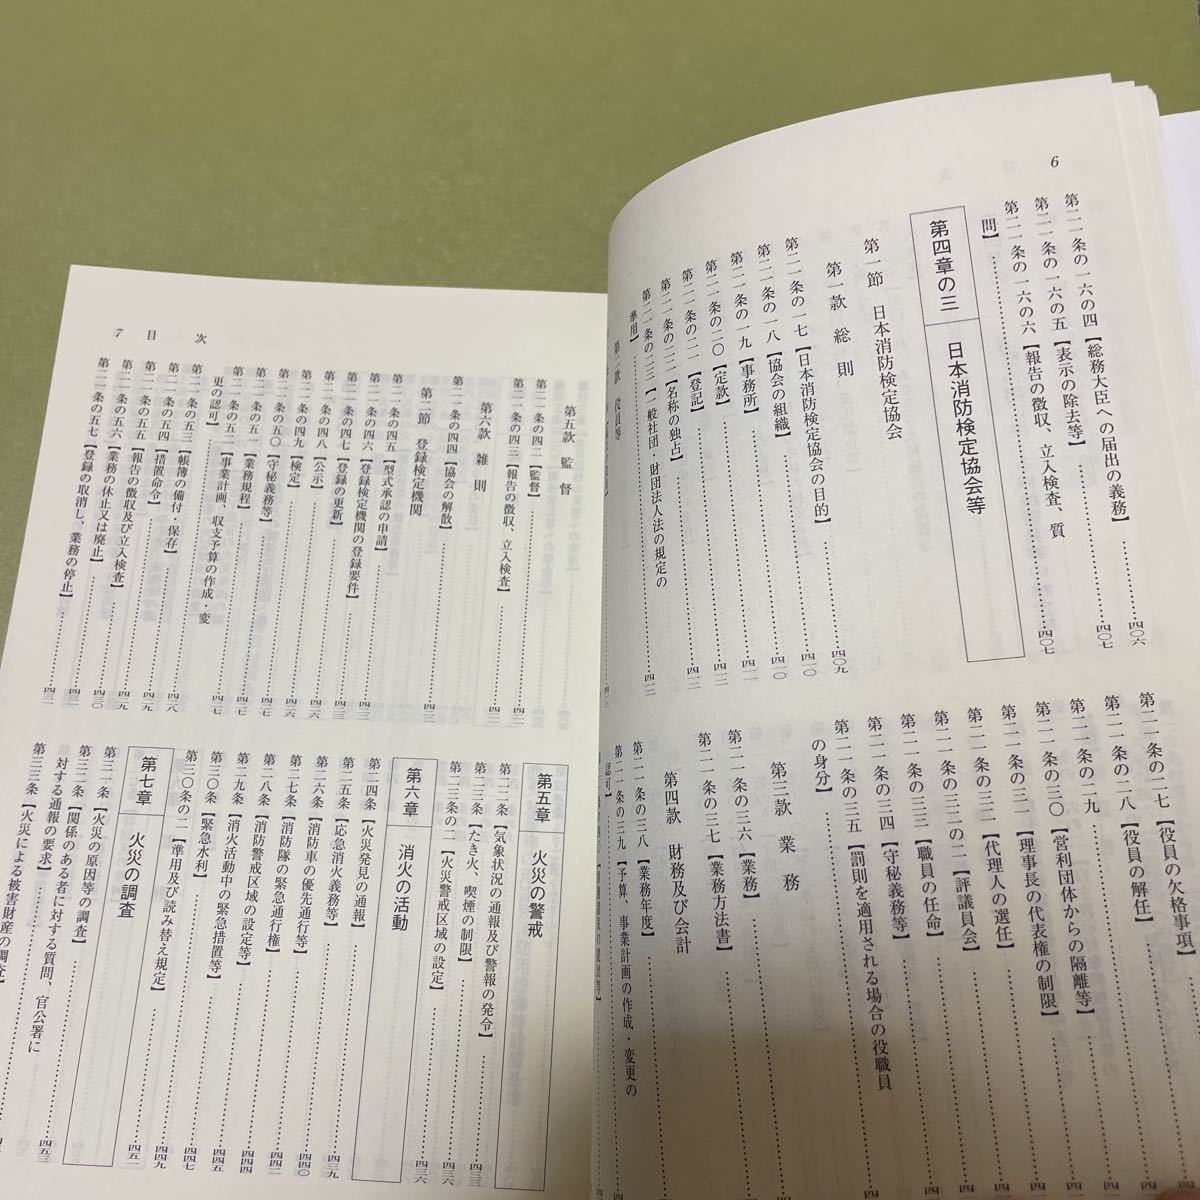 6
第二一条の一六の四【総務大臣への届出の義務】……四〇六
第二一条の一六の五【表示の除去等】……四〇七
第二一条の一六の六【報告の徴収、立入検査、質
問】……四〇七
第四章の三 日本消防検定協会等
第一節 日本消防検定協会
第一款 総則
第二一条の一七【日本消防検定協会の目的】……四〇九
第二一条の一八【協会の組織】……四一〇
第二一条の一九【事務所】……四一〇
第二一条の二〇【定款】……四一一
第二一条の二一【登記】……四一二
第二一条の二二【名称の独占】……四一二
第二一条の二三【一般社団・財団法人法の規定の
準用】……四一二
役員等
第二一条の二七【役員の欠格事項】
第二一条の二八【役員の解任】
第二一条の二九
第二一条の三〇【営利団体からの隔離等】
第二一条の三一【理事長の代表権の制限】
第二一条の三二【代理人の選任】
第二一条の三二の二【評議員会】
第二一条の三三【職員の任命】
第二一条の三四【守秘義務等】
第二一条の三五【罰則を適用される場合の役職員
の身分】
第三款 業務
第二一条の三六【業務】
第二一条の三七【業務方法書】
第四款 財務及び会計
第二一条の三八【業務年度】
第二一条の三九【予算、事業計画の作成・変更の
認可】
7 目次
第五款 監督
第二一条の四二【監督】……四二二
第二一条の四三【報告の徴収、立入検査】……四二二
第六款 雑則
第二一条の四四【協会の解散】……四二三
第二節 登録検定機関
第二一条の四五【型式承認の申請】
第二一条の四六【登録検定機関の登録要件】……四二三
第二一条の四七【登録の更新】……四二三
第二一条の四八【公示】……四二六
第二一条の四九【検定】……四二六
第二一条の五〇【守秘義務等】……四二七
第二一条の五一【業務規程】……四二七
第二一条の五二【事業計画、収支予算の作成・変
更の認可】……四二七
第二一条の五三【帳簿の備付・保存】……四二八
第二一条の五四【措置命令】……四二九
第二一条の五五【報告の徴収及び立入検査】……四二九
第二一条の五六【業務の休止又は廃止】……四三〇
第二一条の五七【登録の取消し、業務の停止】……四三一
第五章 火災の警戒
第二二条【気象状況の通報及び警報の発令】……四三三
第二三条【たき火、喫煙の制限】……四三六
第二三条の二【火災警戒区域の設定】……四三六
第六章 消火の活動
第二四条【火災発見の通報】……四三六
第二五条【応急消火義務等】……四三九
第二六条【消防車の優先通行等】……四四〇
第二七条【消防隊の緊急通行権】……四四二
第二八条【消防警戒区域の設定等】……四四四
第二九条【消火活動中の緊急措置等】……四四五
第三〇条【緊急水利】……四四七
第三〇条の二【準用及び読み替え規定】……四四九
第七章 火災の調査
第三一条【火災の原因等の調査】……四五一
第三二条【関係のある者に対する質問、官公署に
対する通報の要求】……四五三
第三三条【火災による被害財産の調査】